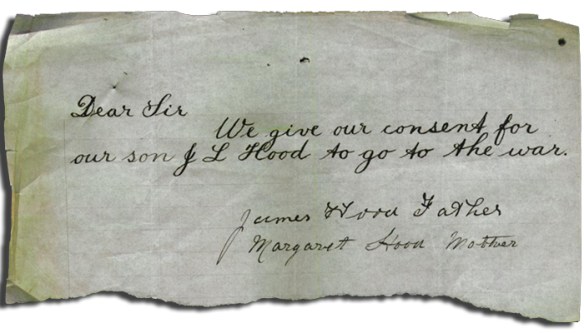 Dear Sir
We give our consent for
our son J L Hood to go to the war.
James Hood Father
Margaret Hood Mother